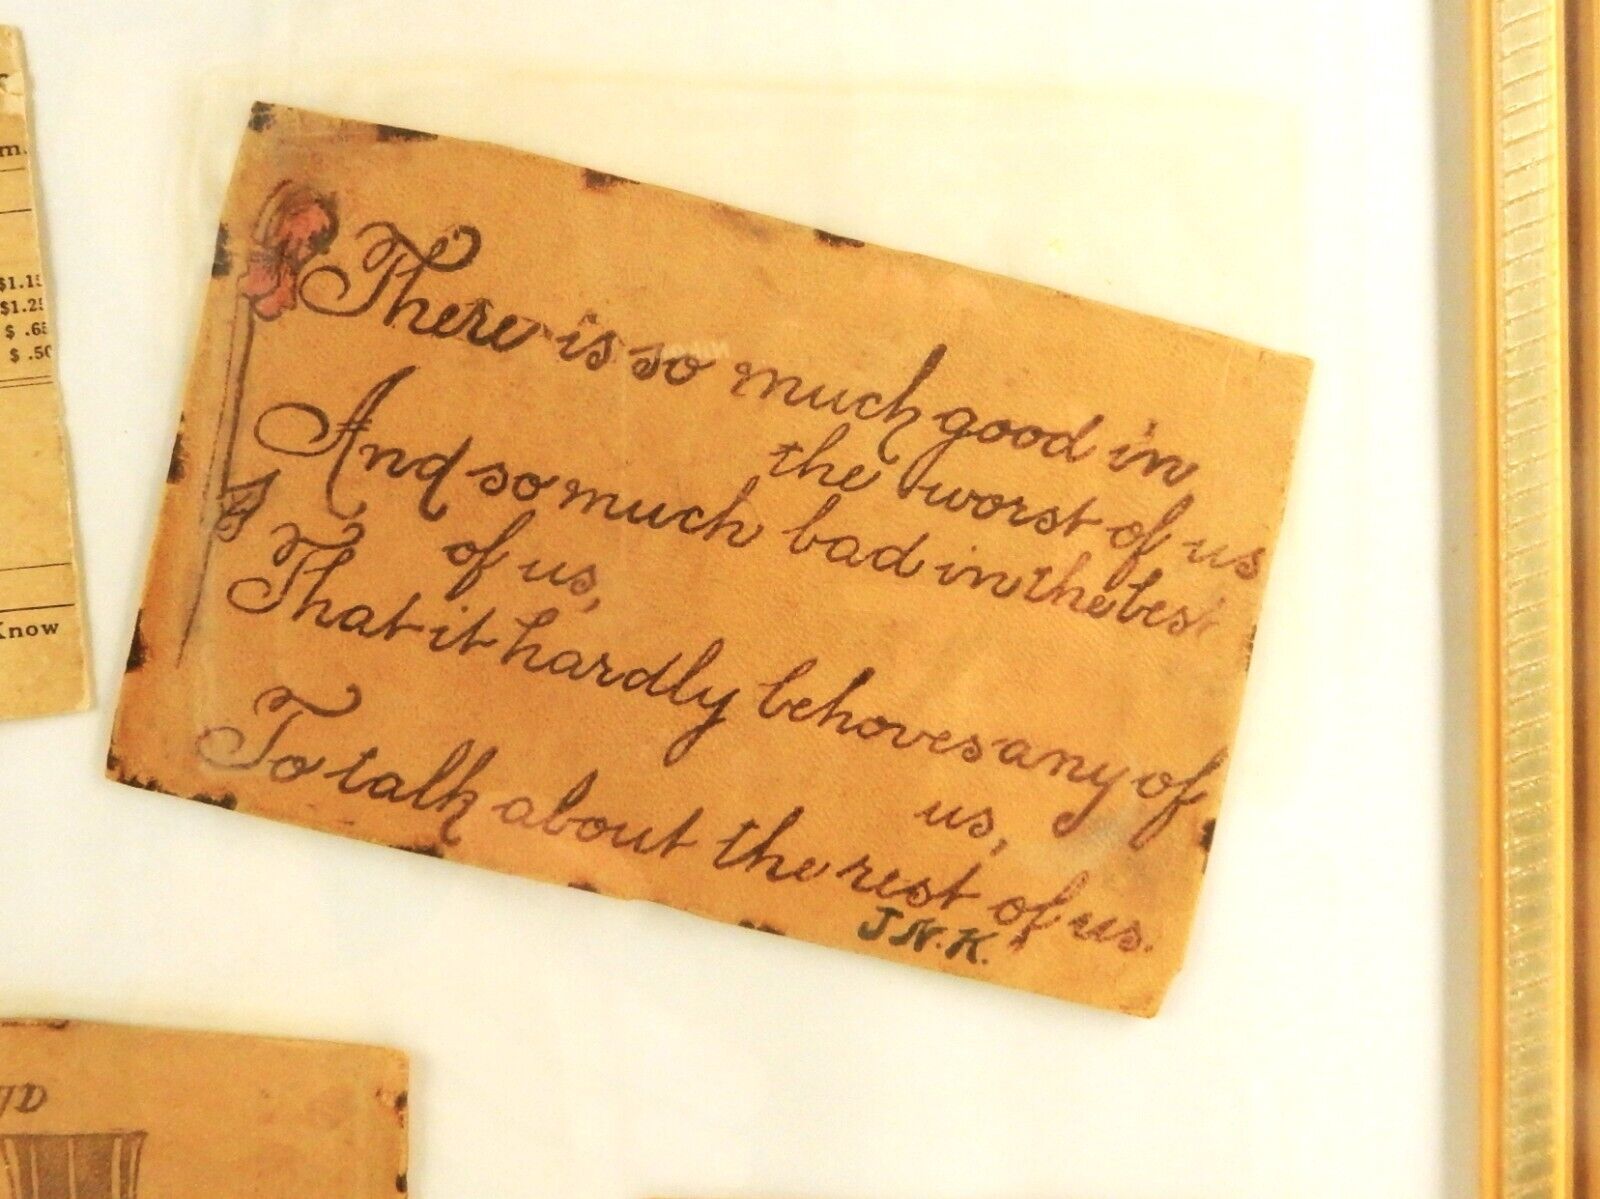 m.
$1.15
$1.25
$ .65
$ .50
Know
There is so much good in
the worst of us
And so much bad in the best
of us,
That it hardly behoves any of
us,
To talk about the rest of us.
J.N.K.